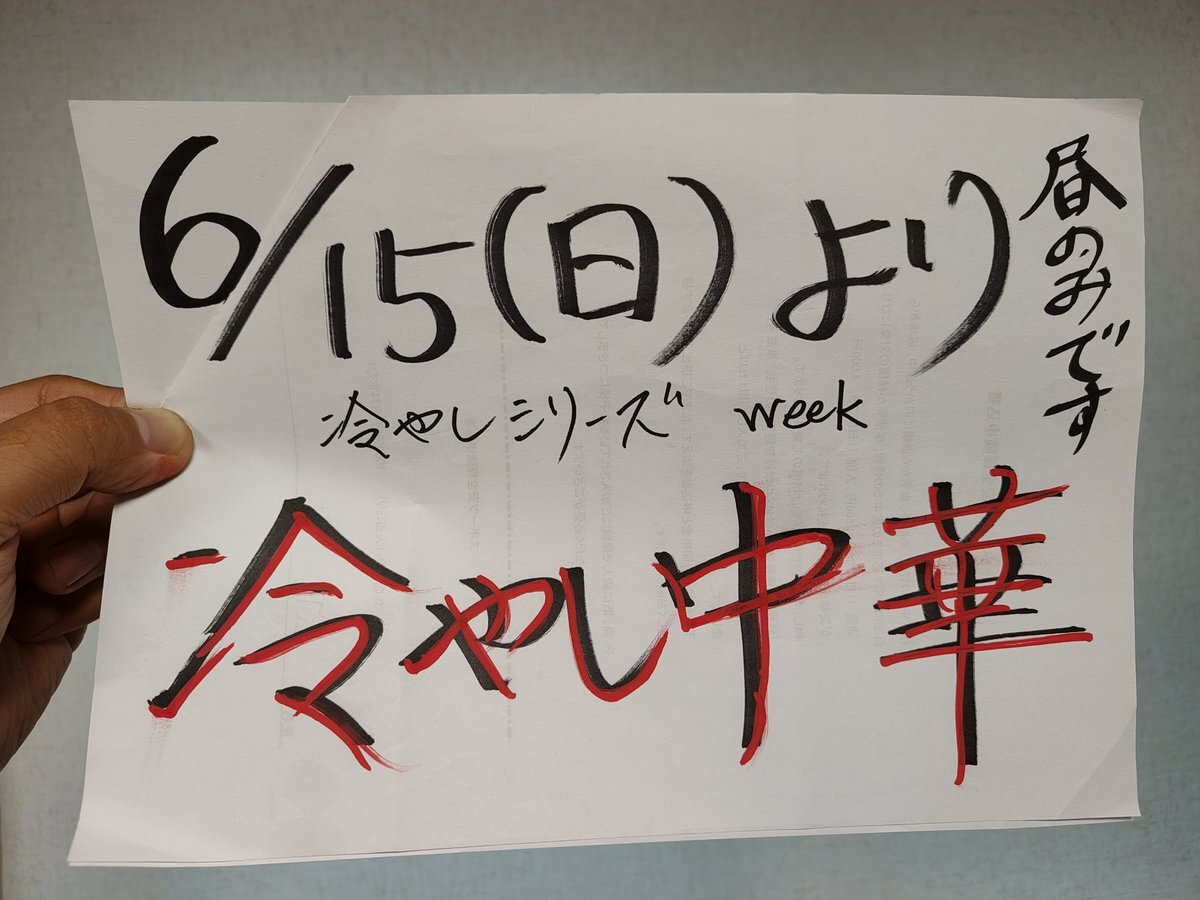 6/15(日)より
昼のみです
冷やしシリーズ week
冷やし中華